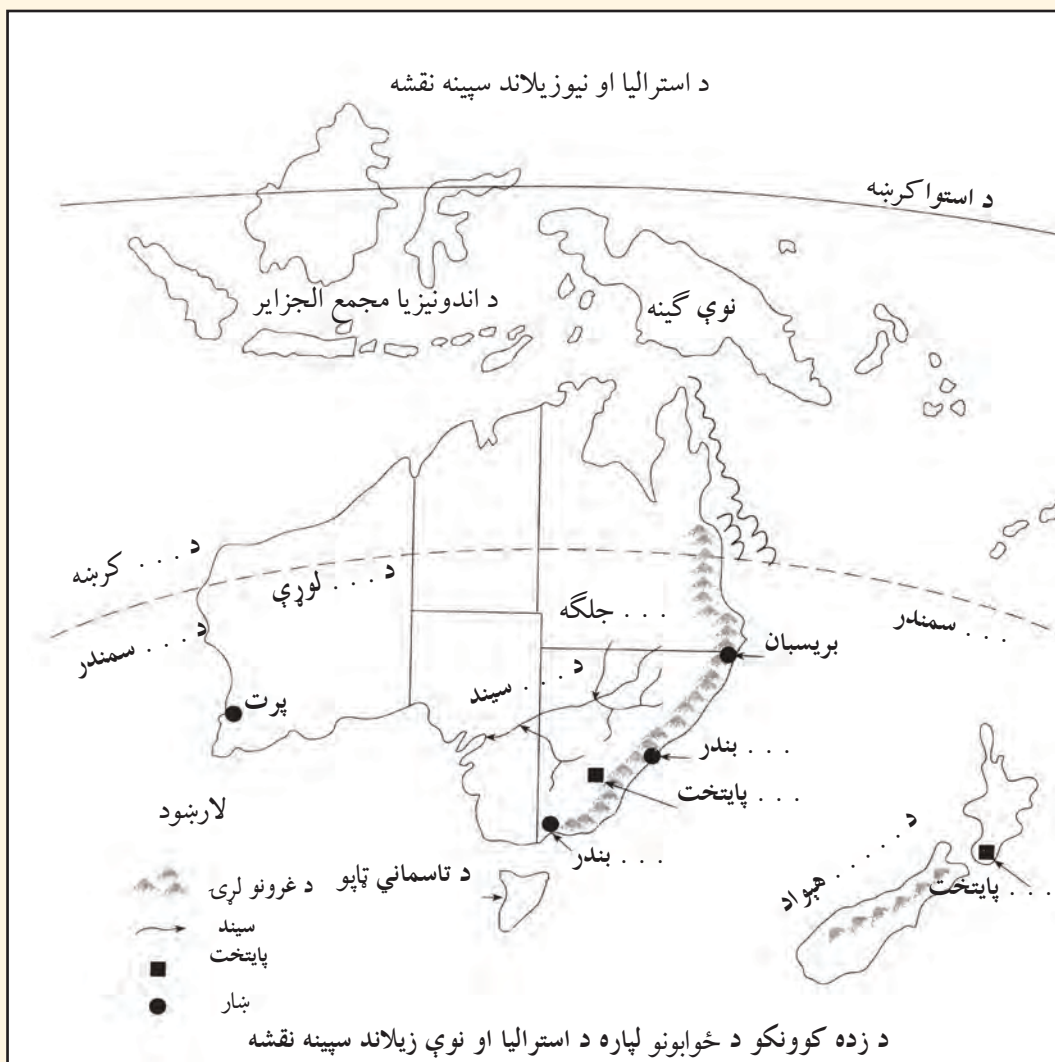 د استرالیا او نیوزیلاند سپینه نقشه
د استوا کرښه
د اندونیزیا مجمع الجزایر
نوې گینه
د . . . کرښه
د . . . لوړې
. . . جلگه
. . . سمندر
د . . . سمندر
بریسبان
د . . . سیند
پرت
. . . بندر
. . . پایتخت
. . . بندر
د . . . . . هېواد
. . . پایتخت
د تاسماني ټاپو
لارښود
د غرونو لړۍ
سیند
پایتخت
ښار
د زده کوونکو د ځوابونو لپاره د استرالیا او نوې زیلاند سپینه نقشه